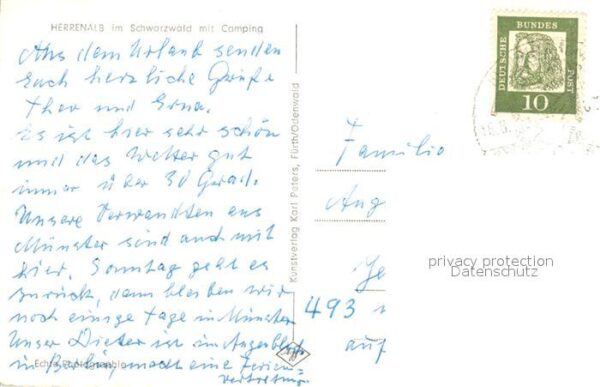 HERRENALB im Schwarzwald mit Camping
Aus dem Urlaub senden
Euch herzliche Grüße
Theo und Erna.
Es ist hier sehr schön
und das Wetter gut
immer über 30 Grad.
Unsere Verwandten aus
Münster sind auch mit
hier. Sonntag geht es
zurück, dann bleiben wir
noch einige Tage in Münster
Unser Dieter ist im Augenblick
in macht eine Ferien-
vertretung
Echte Photographie
Kunstverlag Karl Peters, Fürth/Odenwald
Agfa
DEUTSCHE BUNDESPOST
10
Familie
Aug
493
auf
privacy protection
Datenschutz